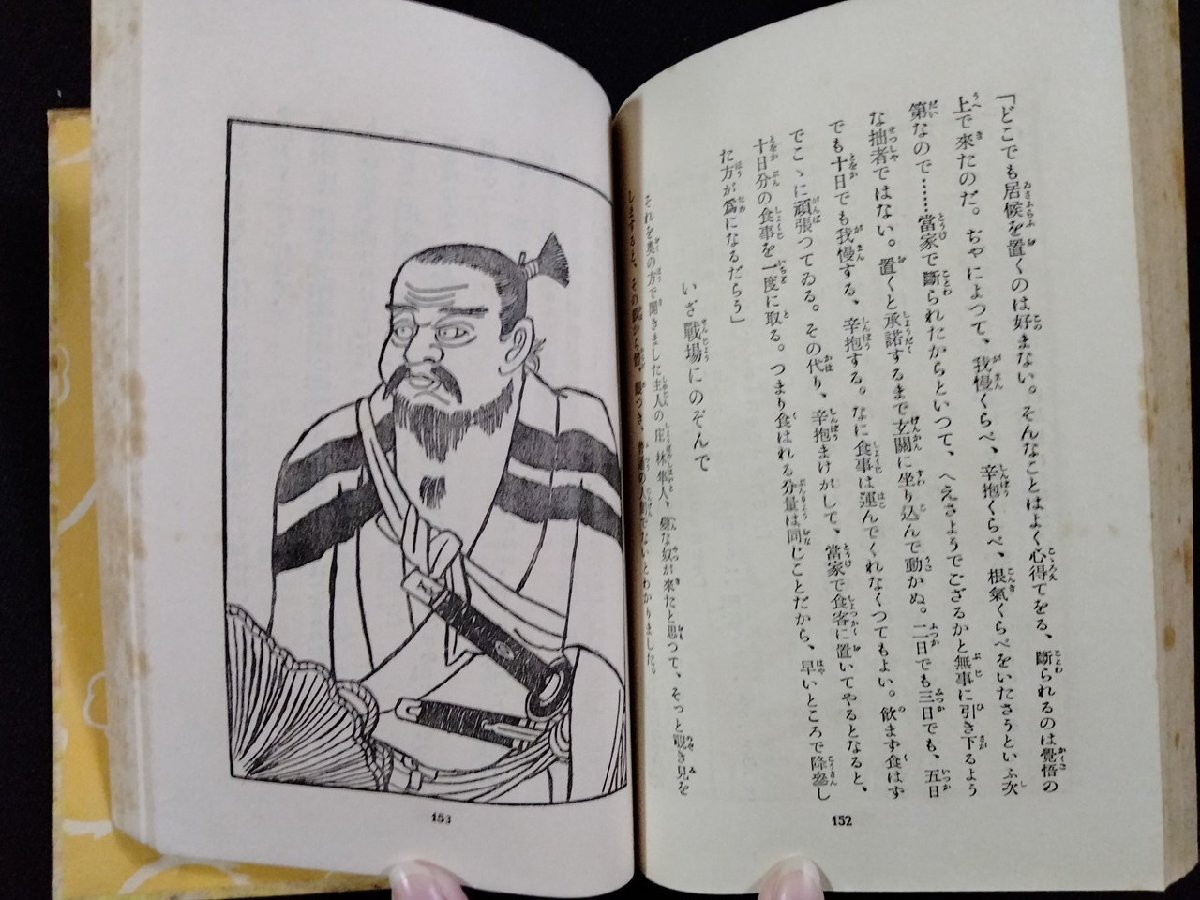 「どこでも居候を置くのは好まない。そんなことはよく心得てをる、斷られるのは覺悟の
上で來たのだ。ぢやによつて、我慢くらべ、辛抱くらべ、根氣くらべをいたさうといふ次
第なので……當家で斷られたからといつて、へえさようでござるかと無事に引き下るよう
な拙者ではない。置くと承諾するまで玄關に坐り込んで動かぬ。二日でも三日でも、五日
でも十日でも我慢する、辛抱する。なに食事は運んでくれなくつてもよい。飮まず食はず
でこゝに頑張つてゐる。その代り、辛抱まけがして、當家で食客に置いてやるとなると、
十日分の食事を一度に取る。つまり食はれる分量は同じことだから、早いところで降參し
た方が爲になるだらう」
いざ戰場にのぞんで
それを奧の方で聞きました主人の庄林隼人、變な奴が來たと思つて、そつと覗き見を
しますると、その
152
153